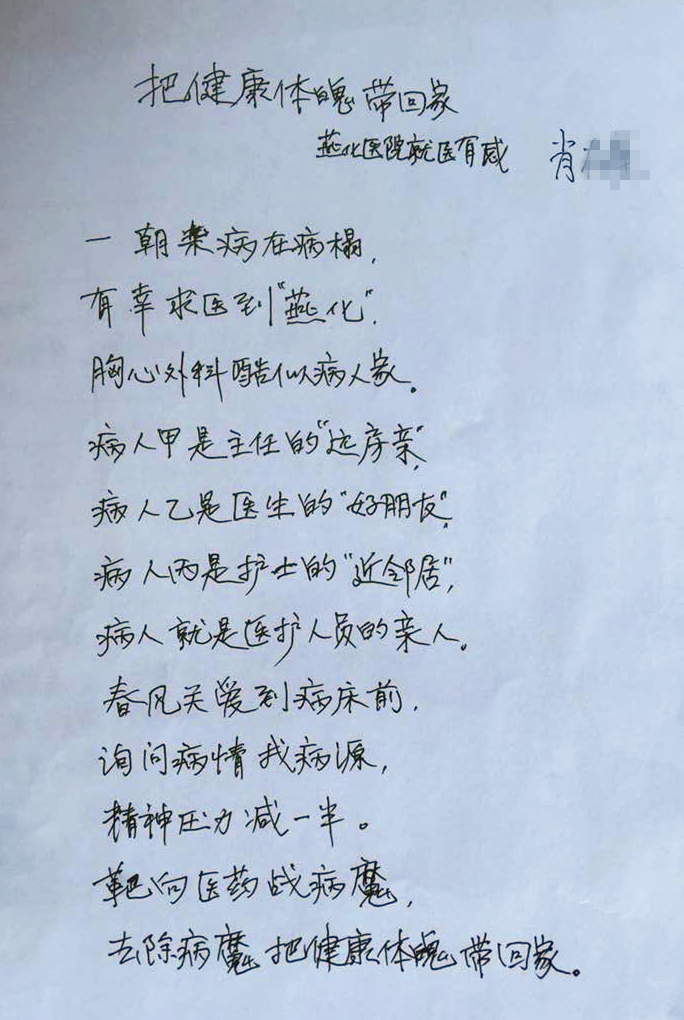 把健康体魄带回家
燕化医院就医有感 肖
一朝染病在病榻,
有幸求医到"燕化".
胸心外科酷似病人家。
病人甲是主任的"远房亲",
病人乙是医生的"好朋友",
病人丙是护士的"近邻居",
病人就是医护人员的亲人。
春风关爱到病床前,
询问病情找病源,
精神压力减一半。
靶向医药战病魔,
去除病魔把健康体魄带回家。